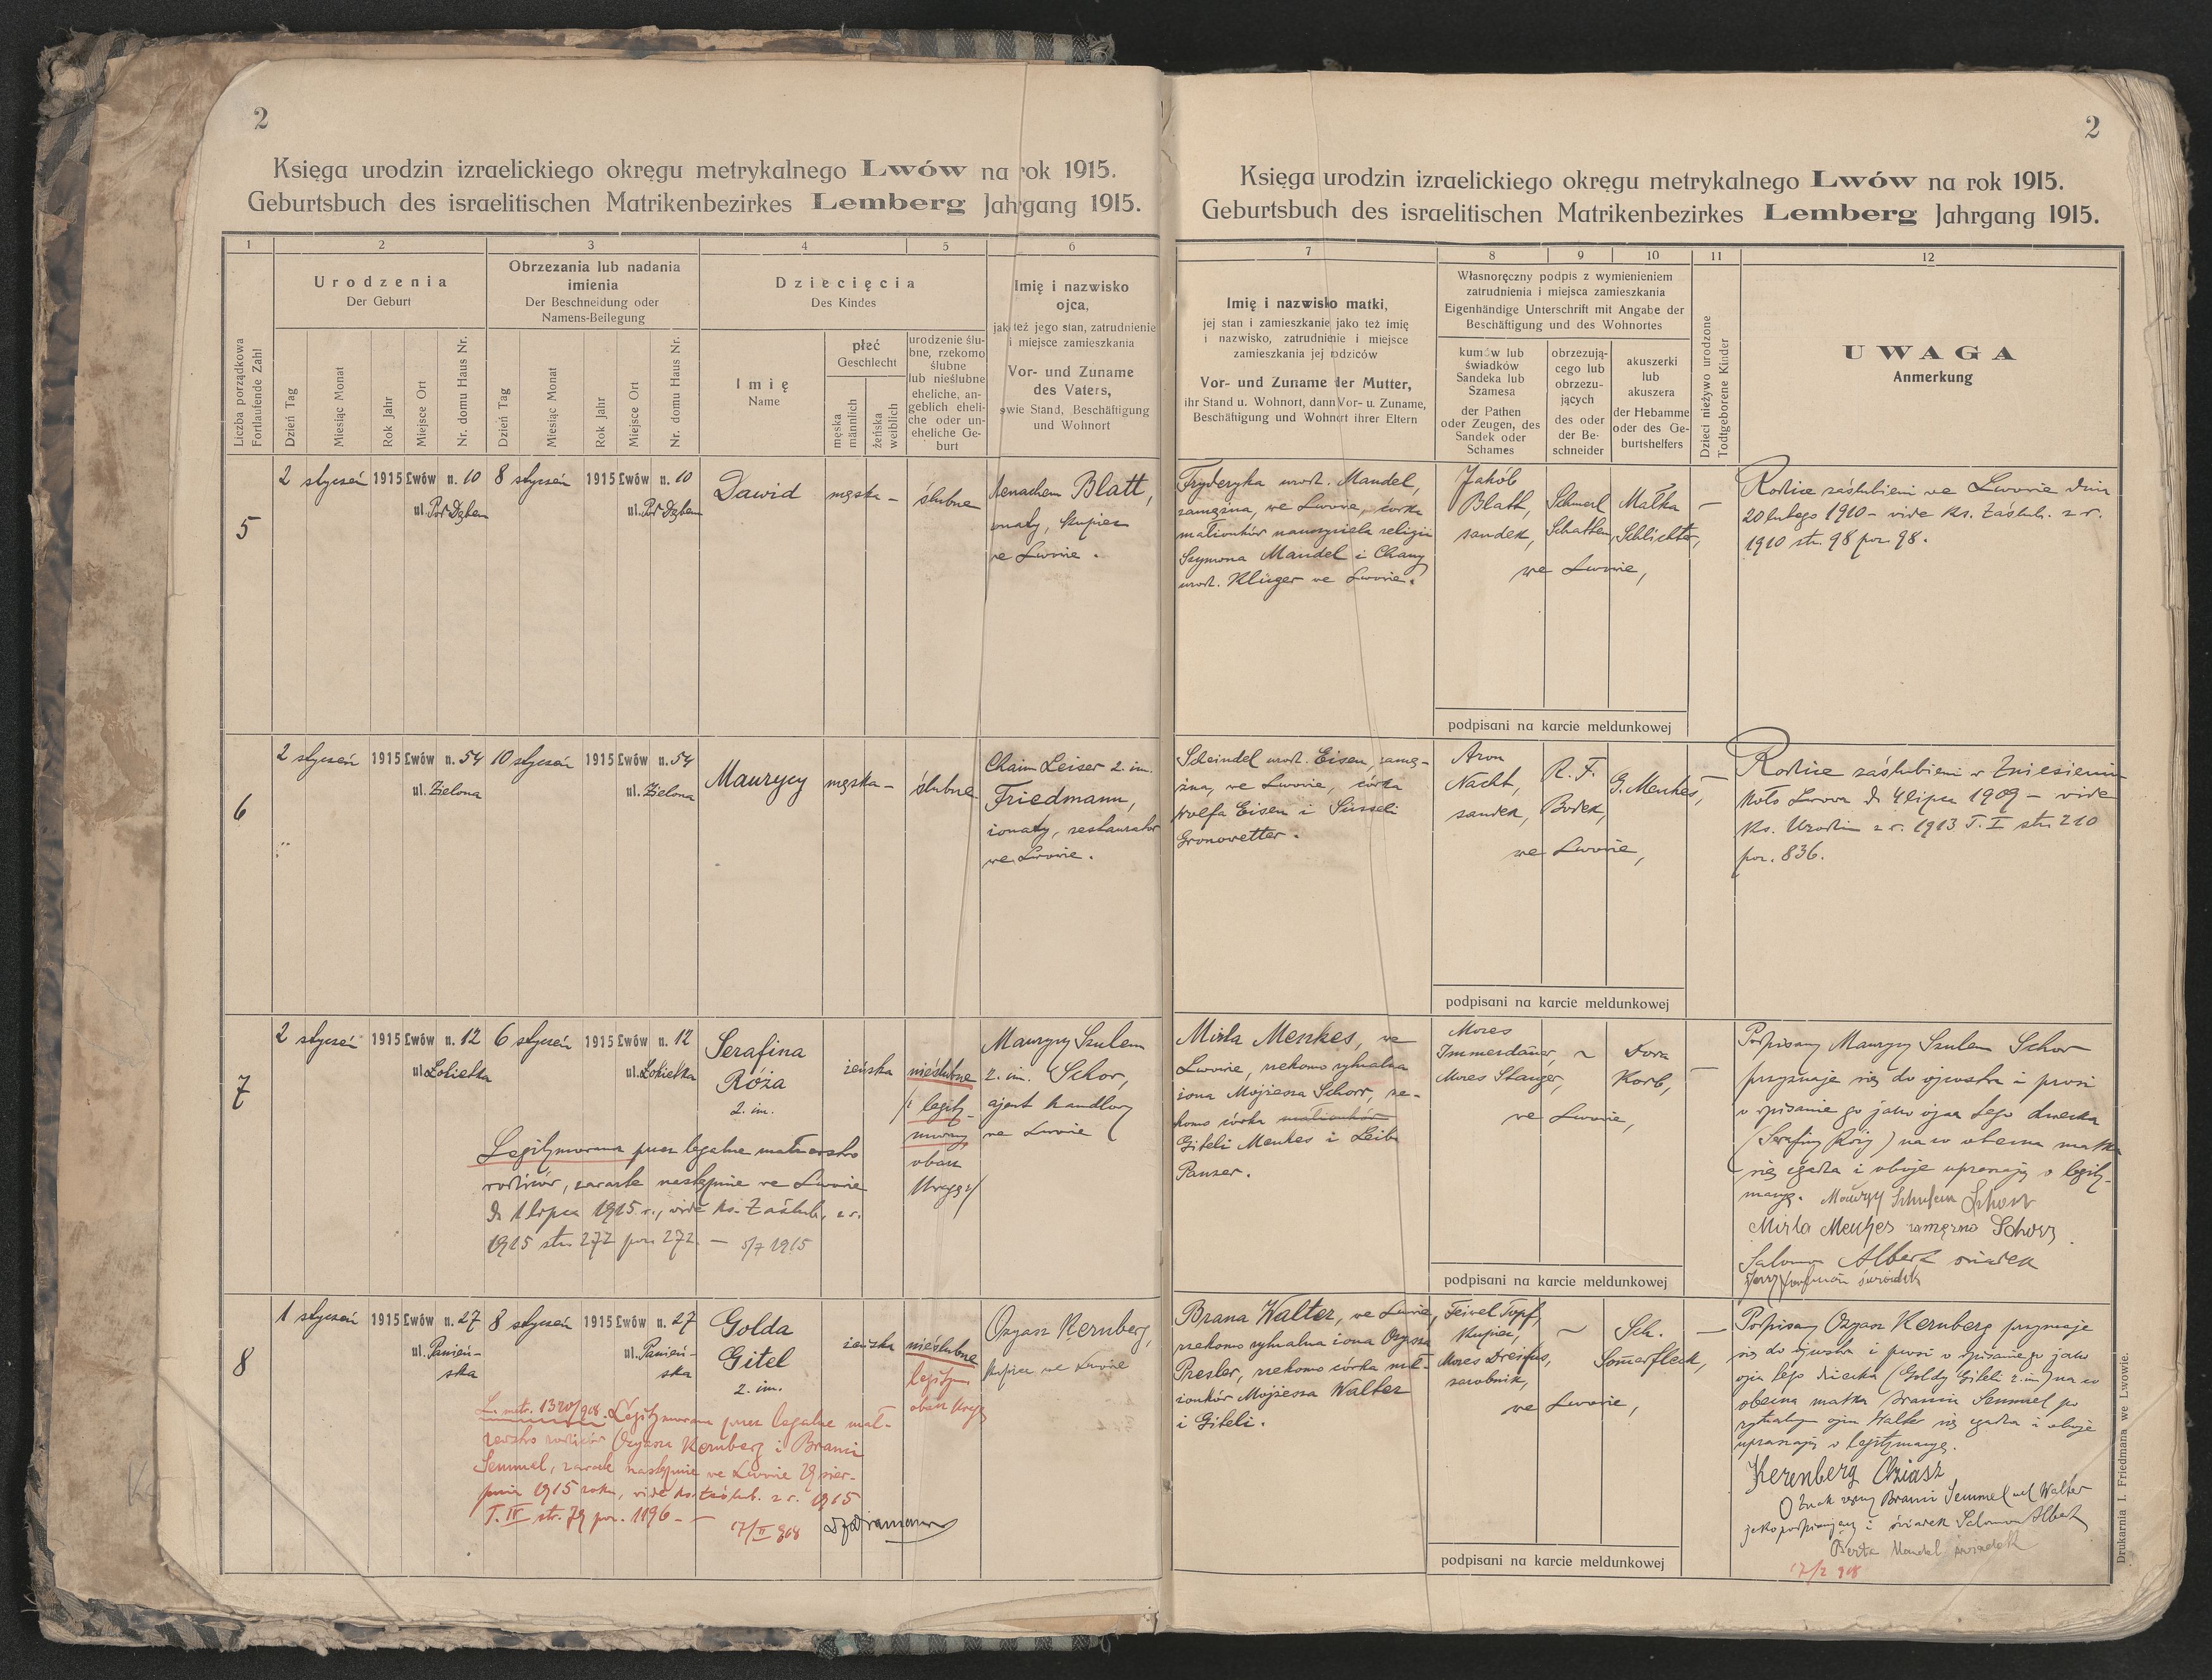 2
Księga urodzin izraelickiego okręgu metrykalnego Lwów na rok 1915.
Geburtsbuch des israelitischen Matrikenbezirkes Lemberg Jahrgang 1915.
1 2 3 4 5 6
Liczba porządkowa
Fortlaufende Zahl
Urodzenia
Der Geburt
Dzień Tag
Miesiąc Monat
Rok Jahr
Miejsce Ort
Nr. domu Haus Nr.
Obrzezania lub nadania
imienia
Der Beschneidung oder
Namens-Beilegung
Dzień Tag
Miesiąc Monat
Rok Jahr
Miejsce Ort
Nr. domu Haus Nr.
Dziecięcia
Des Kindes
Imię
Name
płeć
Geschlecht
męska
männlich
żeńska
weiblich
urodzenie ślu-
bne, rzekomo
ślubne
lub nieślubne
eheliche, an-
geblich eheli-
che oder un-
eheliche Ge-
burt
Imię i nazwisko
ojca,
jak też jego stan, zatrudnienie
i miejsce zamieszkania
Vor- und Zuname
des Vaters,
sowie Stand, Beschäftigung
und Wohnort
5
2 styczeń 1915 Lwów n. 10
ul. Pod Dębem
8 styczeń 1915 Lwów n. 10
ul. Pod Dębem
Dawid
męska –
ślubne
Menachem Blatt,
żonaty, kupiec
we Lwowie.
6
2 styczeń 1915 Lwów n. 54
ul. Zielona
10 styczeń 1915 Lwów n. 54
ul. Zielona
Maurycy
męska –
ślubne
Chaim Leiser 2. im.
Friedmann,
żonaty, restaurator
we Lwowie.
7
2 styczeń 1915 Lwów n. 12
ul. Łokietka
6 styczeń 1915 Lwów n. 12
ul. Łokietka
Serafina
Róża
2. im.
żeńska
nieślubne
/: legity-
mowany
obacz
Uwagę/
Maurycy Szulem
2. im. Schor,
ajent handlowy
we Lwowie
Legitymowana przez legalne małżeństwo
rodziców, zawarte następnie we Lwowie
d. 1 lipca 1915 r., vide ks. Zaślub. z r.
1915 str. 272 poz. 272. — 5/7 1915
8
1 styczeń 1915 Lwów n. 27
ul. Panień-
ska
8 styczeń 1915 Lwów n. 27
ul. Panień-
ska
Golda
Gitel
2. im.
żeńska
nieślubne
legitym
obacz Uwagę
Ozyasz Kernberg,
kupiec we Lwowie
L. metr. 1320/918. Legitymowana przez legalne mał-
żeństwo rodziców Ozyasza Kernberg i Brami
Semmel, zawarte następnie we Lwowie 29 sier-
pnia 1915 roku, vide ks. zaślub. z r. 1915
T. IV str. 79 poz. 1196. —
17/II 918
2
Księga urodzin izraelickiego okręgu metrykalnego Lwów na rok 1915.
Geburtsbuch des israelitischen Matrikenbezirkes Lemberg Jahrgang 1915.
7 8 9 10 11 12
Imię i nazwisko matki,
jej stan i zamieszkanie jako też imię
i nazwisko, zatrudnienie i miejsce
zamieszkania jej rodziców
Vor- und Zuname der Mutter,
ihr Stand u. Wohnort, dann Vor- u. Zuname,
Beschäftigung und Wohnort ihrer Eltern
Własnoręczny podpis z wymienieniem
zatrudnienia i miejsca zamieszkania
Eigenhändige Unterschrift mit Angabe der
Beschäftigung und des Wohnortes
kumów lub
świadków
Sandeka lub
Szamesa
der Pathen
oder Zeugen, des
Sandek oder
Schames
obrzezują-
cego lub
obrzezu-
jących
des oder
der Be-
schneider
akuszerki
lub
akuszera
der Hebamme
oder des Ge-
burtshelfers
Dzieci nieżywo urodzone
Todtgeborene Kinder
UWAGA
Anmerkung
Fryderyka urodz. Mandel,
zamężna, we Lwowie, córka
małżonków nauczyciela religii
Szymona Mandel i Chany
urodz. Klüger we Lwowie.
Jakób
Blatt,
sandek,
Schmerl
Schatten,
Małka
Schlichter,
we Lwowie,
–
Rodzice zaślubieni we Lwowie dnia
20 lutego 1910 – vide ks. Zaślub. z r.
1910 str. 98 poz. 98.
podpisani na karcie meldunkowej
Scheindel urodz. Eisen, zamę-
żna, we Lwowie, córka
Wolfa Eisen i Süsseli
Gronowetter.
Aron
Nacht,
sandek,
R. F.
Bodek,
G. Menkes,
we Lwowie,
–
Rodzice zaślubieni w Zniesieniu
koło Lwowa d. 4 lipca 1909 – vide
ks. Urodzin z r. 1913 T. I str. 210
poz. 836.
podpisani na karcie meldunkowej
Mirla Menkes, we
Lwowie, rzekomo rytualna
żona Mojżesza Schorr, rze-
komo córka małżonków
Giteli Menkes i Leib
Panzer.
Mozes
Immerdauer,
Mozes Stanger,
~
Dora
Korb,
we Lwowie,
–
Podpisany Maurycy Szulem Schor
przyznaje się do ojcostwa i prosi
o wpisanie go jako ojca tego dziecka
(Serafiny Róży) na co obecna matka
się zgadza i oboje upraszają o legity-
mację. Maurycy Schulem Schorr
Mirla Menkes zamężna Schorr
Salomon Albert świadek
świadek
podpisani na karcie meldunkowej
Brana Walter, we Lwowie,
rzekomo rytualna żona Ozyasza
Presler, rzekomo córka mał-
żonków Mojżesza Walter
i Giteli.
Feiwel Topf,
kupiec,
Mozes Dreifus,
zarobnik,
~
Sch.
Somerfleck,
we Lwowie,
–
Podpisany Ozyasz Kernberg przyznaje
się do ojcostwa i prosi o wpisanie go jako
ojca tego dziecka (Goldy Giteli 2. im) na co
obecna matka Brania Semmel po
rytualnym ojcu Walter się zgadza i oboje
upraszają o legitymację.
Kernberg Oziasz
O Znak ręczny Brami Semmel vel Walter
jako podpisujący i świadek Salomon Albert
Berta Mandel świadek
17/2 918
podpisani na karcie meldunkowej
Drukarnia I. Friedmana we Lwowie.